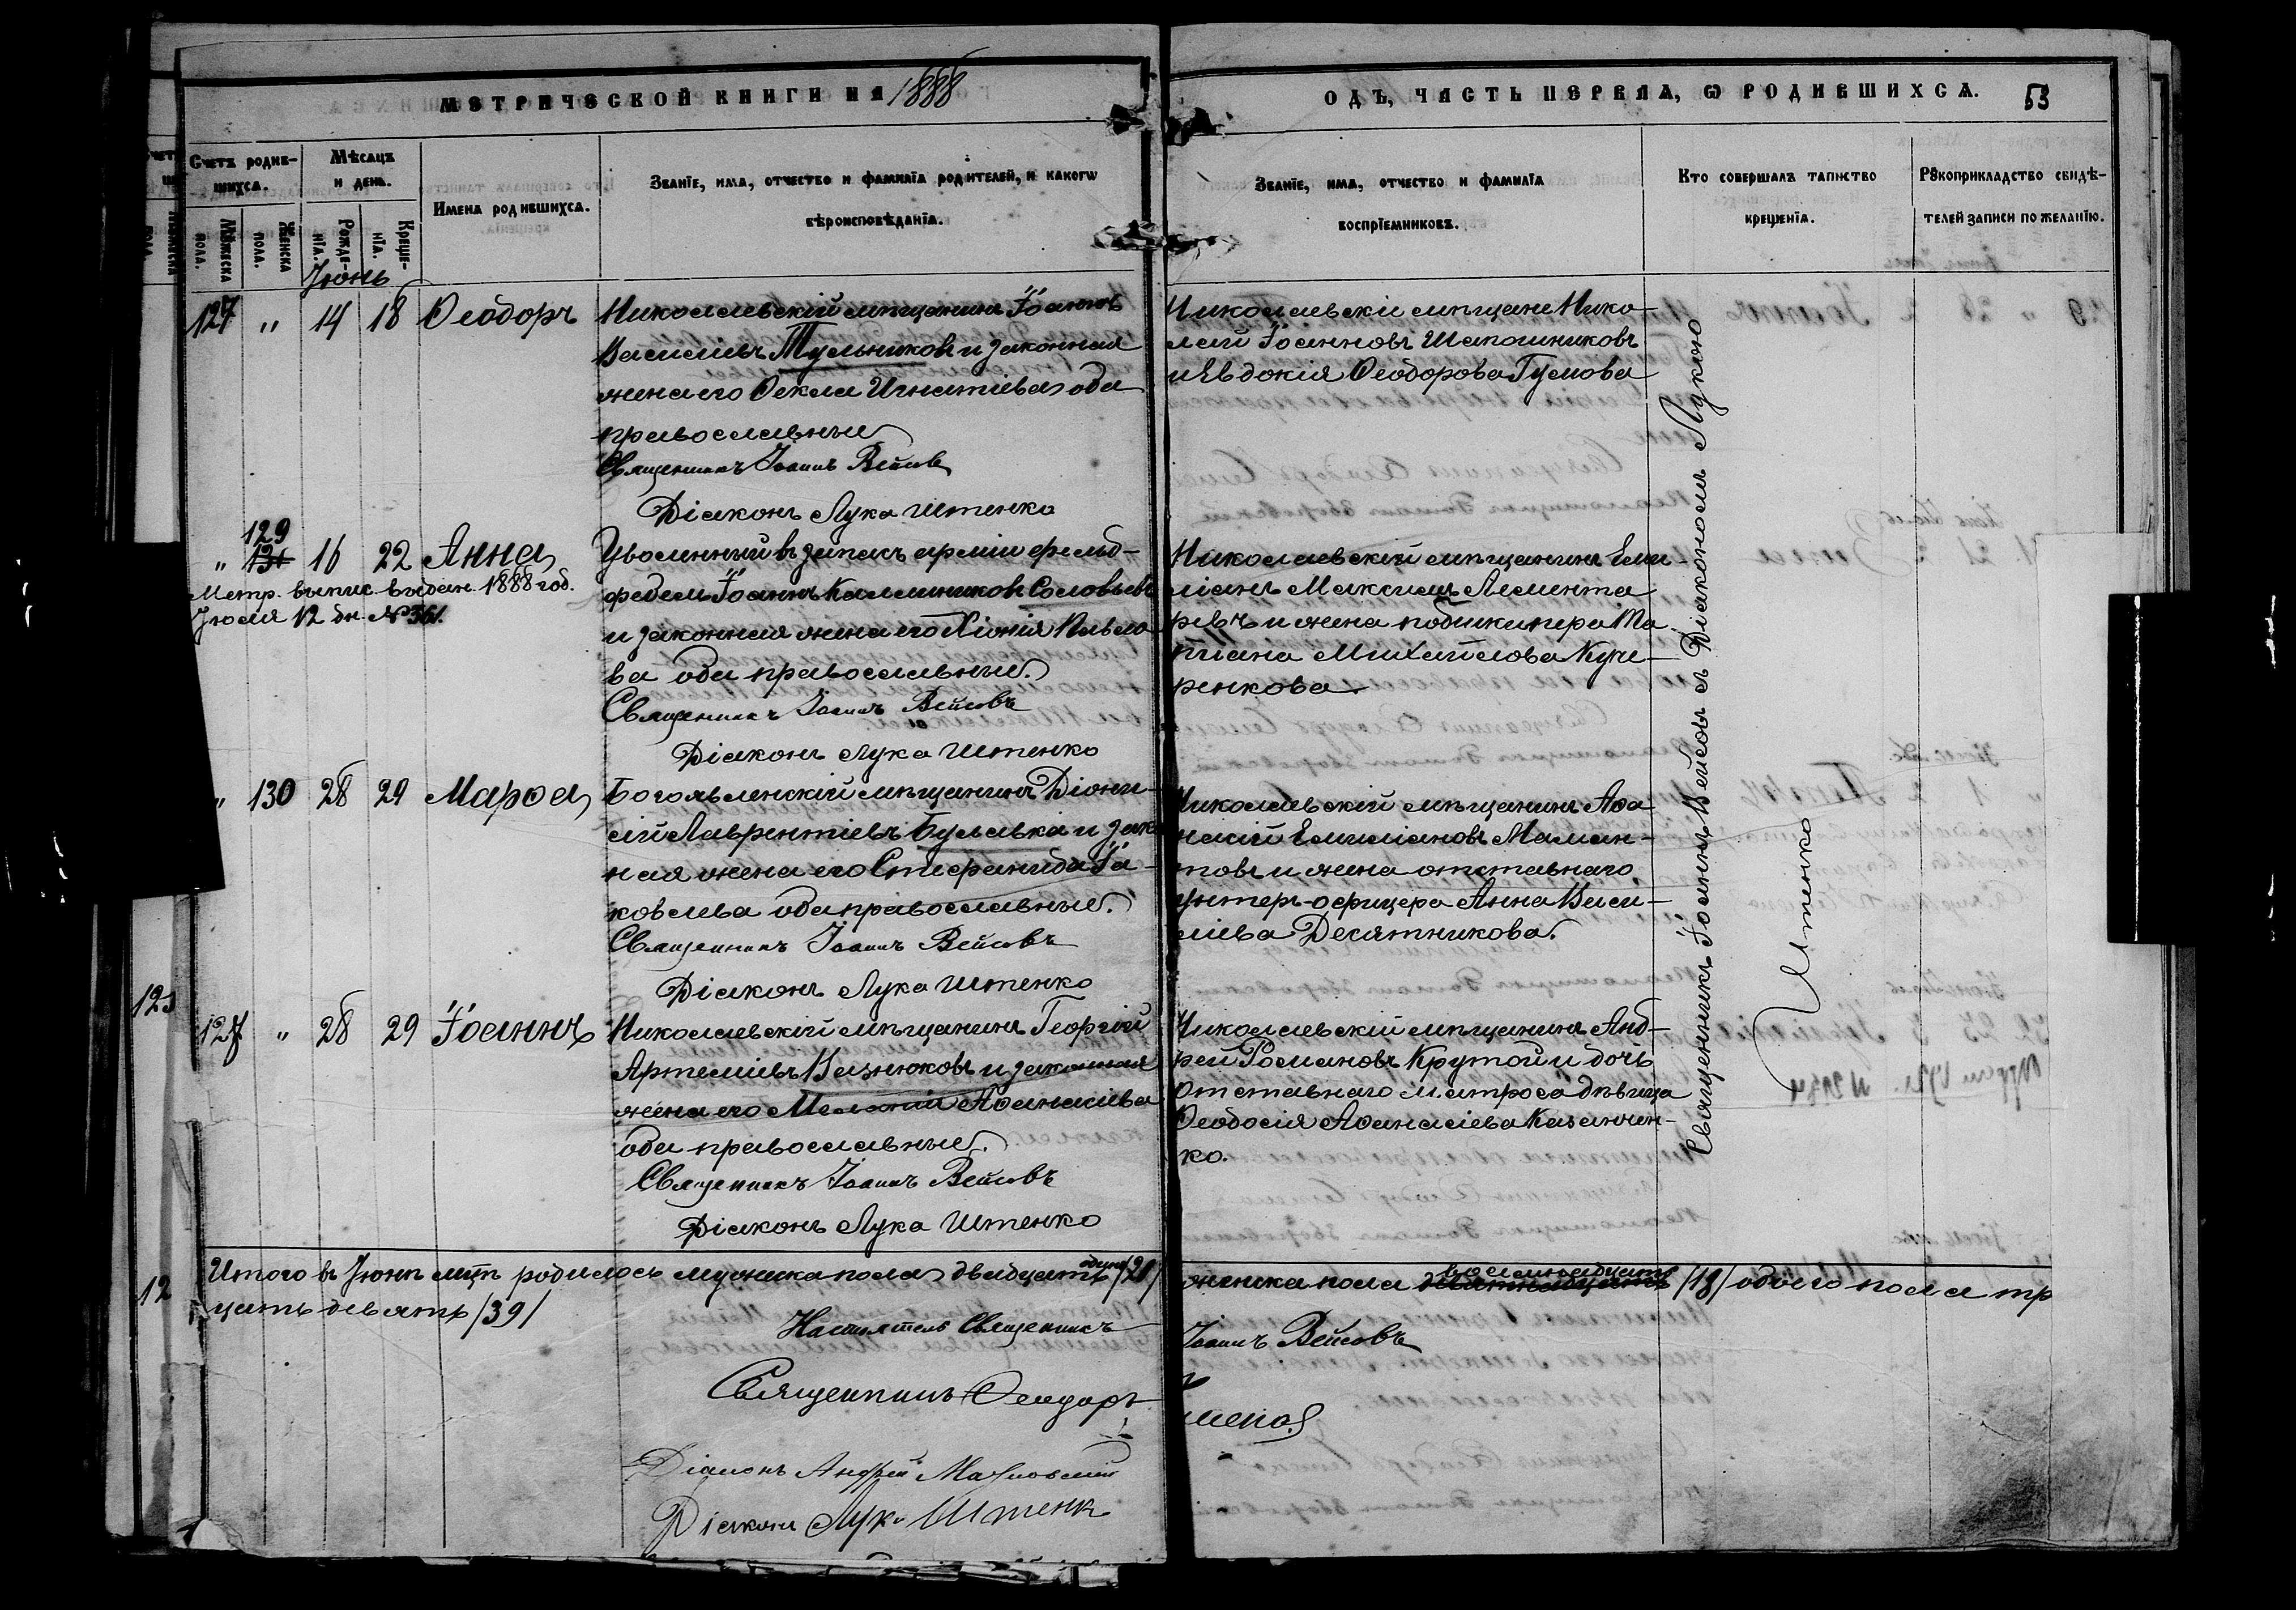 МЕТРИЧЕСКОЙ КНИГИ НА 1888
ОДЪ, ЧАСТЬ ПЕРВАЯ, Ѡ РОДИВШИХСЯ. 53
Счетъ родив-
шихся.
Мѣсяцъ
и день.
Имена родившихся.
Званїе, имя, отчество и фамилїя родителей, и какогѡ
вѣроисповѣданїя.
Мꙋжеска
пола.
Женска
пола.
Рожде-
нїя.
Креще-
нїя.
Званїе, имя, отчество и фамилїя
воспрїемниковъ.
Кто совершалъ таинство
крещенїя.
Рꙋкоприкладство свидѣ-
телей записи по желанїю.
Іюнь
127 " 14 18 Ѳеодоръ
Николаевскій мѣщанинъ Іоаннъ
Василіевъ Тульниковъ и законная
жена его Ѳекла Игнатіева оба
православные
Священникъ Іоаннъ Вейсовъ
Діаконъ Лука Штенко
Николаевскіе мѣщане Нико-
лай Іоанновъ Шапошниковъ
и Евдокія Ѳеодорова Гумова
" 129 16 22 Анна
131
Метр. выпис. выдан. 1888 год.
Іюля 12 дн. № 361.
Уволенный въ запасъ арміи фельд-
фебель Іоаннъ Калинниковъ Соловьевъ
и законная жена его Хіонія Павло-
ва оба православные.
Священникъ Іоаннъ Вейсовъ
Діаконъ Лука Штенко
Николаевскій мѣщанинъ Еми-
ліанъ Максимъ
и жена подшкипера Та
тіана Михайлова Куче-
ренкова
" 130 28 29 Марѳа
Богоявленскій мѣщанинъ Діони-
сій Лаврентіевъ Булавка и зако
ная жена его Стефанида Іа-
ковлева оба православные.
Священникъ Іоаннъ Вейсовъ
Діаконъ Лука Штенко
Николаевскій мѣщанинъ Аѳа
насій Емиліановъ Маман-
товъ и жена отставнаго
унтеръ-офицера Анна Васи-
ліева Десятникова.
127 " 28 29 Іоаннъ
Николаевскій мѣщанинъ Георгій
Артеміевъ Вазнюковъ и законная
жена его Мелонія Аѳанасіева
оба православные.
Священникъ Іоаннъ Вейсовъ
Діаконъ Лука Штенко
Николаевскій мѣщанинъ Анд-
рей Романовъ Крутой и дочь
отставнаго матроса дѣвица
Ѳеодосія Аѳанасіева Казанчен-
ко.
Священникъ Іоаннъ Вейсовъ съ Діакономъ Лукою
Штенко
Итого въ Іюнѣ мцѣ родилось мужеска пола двадцать один /21/ женска пола восемнадцать /18/ обоего пола тр
цать девять /39/
Настоятель Священникъ Іоаннъ Вейсовъ
Священникъ Ѳеодоръ
Діаконъ Андрей
Діаконъ Лука Штенк